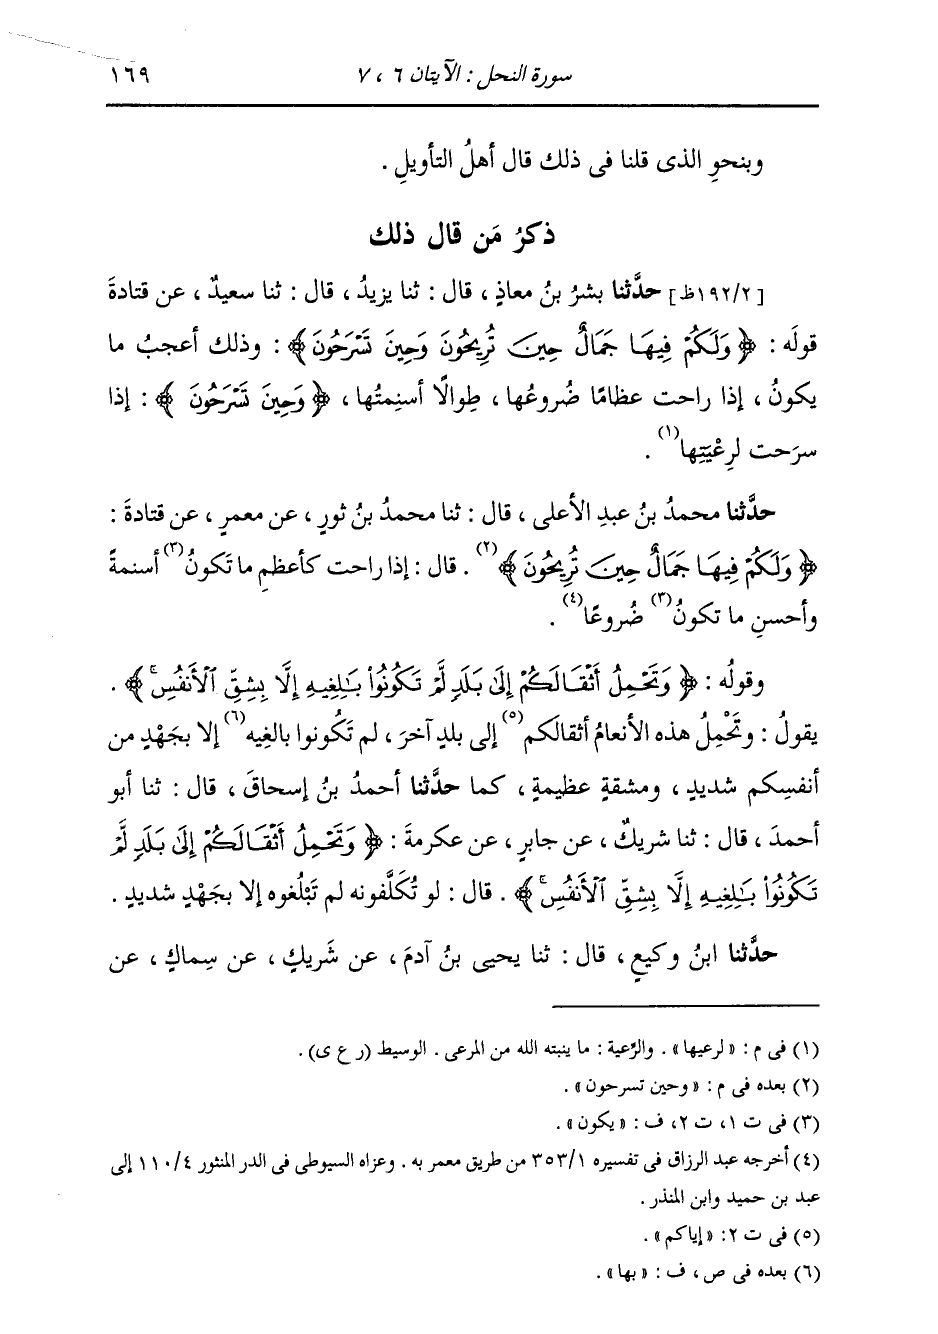 سورة النحل : الآيتان ٦ ، ٧ ١٦٩
وبنحوِ الذى قلنا فى ذلك قال أهلُ التأويلِ .
ذكرُ مَن قال ذلك
[١٩٢/٢ظ] حدَّثنا بشرُ بنُ معاذٍ ، قال : ثنا يزيدُ ، قال : ثنا سعيدٌ ، عن قتادةَ
قولَه : ﴿ وَلَكُمْ فِيهَا جَمَالٌ حِينَ تُرِيحُونَ وَحِينَ تَسْرَحُونَ ﴾ : وذلك أعجبُ ما
يكونُ ، إذا راحت عظامًا ضُروعُها ، طِوالًا أسنِمتُها ، ﴿ وَحِينَ تَسْرَحُونَ ﴾ : إذا
سرَحت لرِعْيَتِها(١) .
حدَّثنا محمدُ بنُ عبدِ الأعلى ، قال : ثنا محمدُ بنُ ثورٍ ، عن معمرٍ ، عن قتادةَ :
﴿ وَلَكُمْ فِيهَا جَمَالٌ حِينَ تُرِيحُونَ ﴾(٢) . قال : إذا راحت كأعظمِ ما تَكونُ(٣) أسنمةً
وأحسنِ ما تكونُ(٣) ضُروعًا(٤) .
وقولُه : ﴿ وَتَحْمِلُ أَثْقَالَكُمْ إِلَىٰ بَلَدٍ لَّمْ تَكُونُوا۟ بَٰلِغِيهِ إِلَّا بِشِقِّ ٱلْأَنفُسِ ۚ ﴾ .
يقولُ : وتَحْمِلُ هذه الأنعامُ أثقالَكم(٥) إلى بلدٍ آخرَ ، لم تَكُونوا بالغِيه(٦) إلا بجَهْدٍ من
أنفسِكم شديدٍ ، ومشقةٍ عظيمةٍ ، كما حدَّثنا أحمدُ بنُ إسحاقَ ، قال : ثنا أبو
أحمدَ ، قال : ثنا شريكٌ ، عن جابرٍ ، عن عكرمةَ : ﴿ وَتَحْمِلُ أَثْقَالَكُمْ إِلَىٰ بَلَدٍ لَّمْ
تَكُونُوا۟ بَٰلِغِيهِ إِلَّا بِشِقِّ ٱلْأَنفُسِ ۚ ﴾ . قال : لو تُكلَّفونه لم تَبْلُغوه إلا بجَهْدٍ شديدٍ .
حدَّثنا ابنُ وكيعٍ ، قال : ثنا يحيى بنُ آدمَ ، عن شَريكٍ ، عن سِماكٍ ، عن
(١) فى م : « لرعيها » . والرَّعية : ما ينبته الله من المرعى . الوسيط (ر ع ى) .
(٢) بعده فى م : « وحين تسرحون » .
(٣) فى ت ١، ت ٢، ف : « يكون » .
(٤) أخرجه عبد الرزاق فى تفسيره ٣٥٣/١ من طريق معمر به . وعزاه السيوطى فى الدر المنثور ١١٠/٤ إلى
عبد بن حميد وابن المنذر .
(٥) فى ت ٢: « إياكم » .
(٦) بعده فى ص ، ف : « بها » .